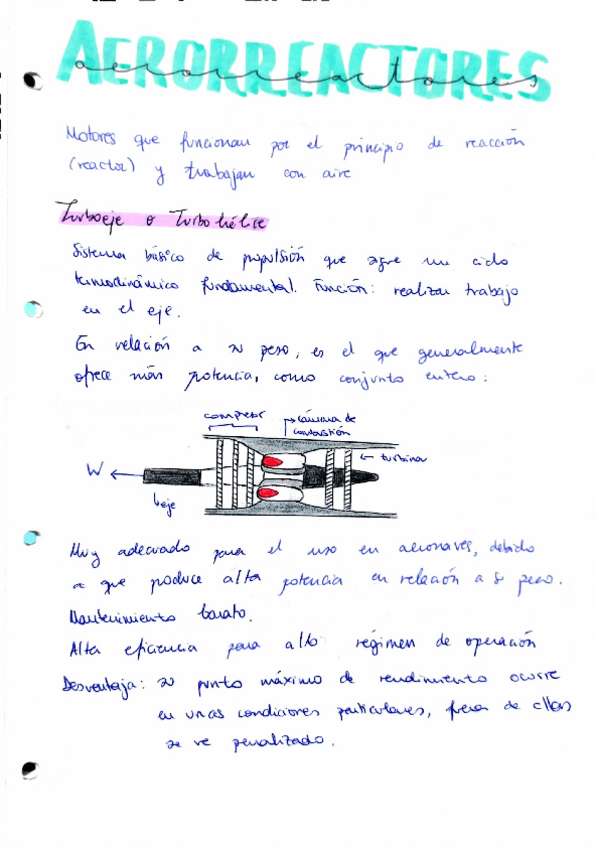 AERORREACTORES
aerorreactores
Motores que funcionan por el principio de reacción
(reactor) y trabajan con aire
Turboeje o Turbohélice
Sistema básico de propulsión que sigue un ciclo
termodinámico fundamental. Función: realizar trabajo
en el eje.
En relación a su peso, es el que generalmente
ofrece más potencia, como conjunto entero:
compresor
cámara de
combustión
turbina
W
eje
Muy adecuado para el uso en aeronaves, debido
a que produce alta potencia en relación a su peso.
Mantenimiento barato.
Alta eficiencia para alto régimen de operación
Desventaja: su punto máximo de rendimiento ocurre
en unas condiciones particulares, fuera de ellas
se ve penalizado.